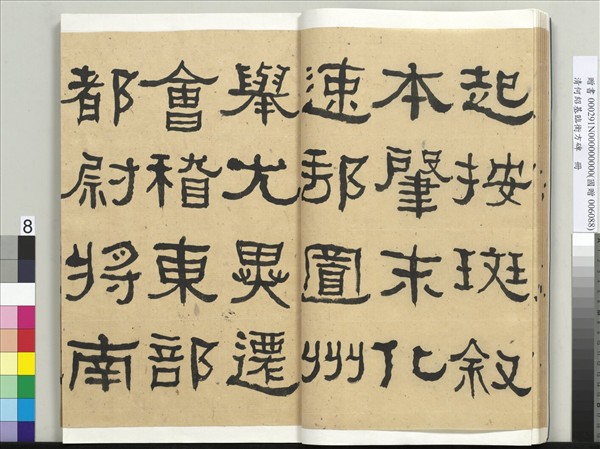 起按斑叙
本肇末化
速郙置州
舉尤異遷
會稽東部
都尉將南
贈書 000291N000000000(國贈 006088)
清何紹基臨衡方碑 冊
8